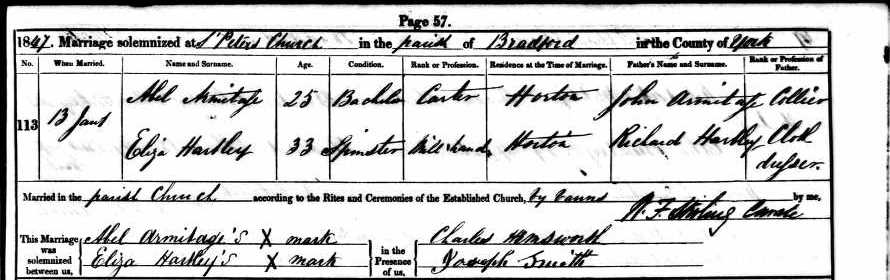 Page 57.
1847. Marriage solemnized at St Peters Church in the parish of Bradford in the County of York
No. When Married. Name and Surname. Age. Condition. Rank or Profession. Residence at the Time of Marriage. Father's Name and Surname. Rank or Profession of Father.
113 13 Jany Abel Armitage 25 Bachelor Carter Horton John Armitage Collier
Eliza Hartley 33 Spinster Mill hand Horton Richard Hartley Cloth dresser.
Married in the parish Church according to the Rites and Ceremonies of the Established Church, by banns by me,
W. F. Curate
This Marriage was solemnized between us, Abel Armitage's X mark in the Presence of us, Charles Hemsworth
Eliza Hartley's X mark Joseph Smith